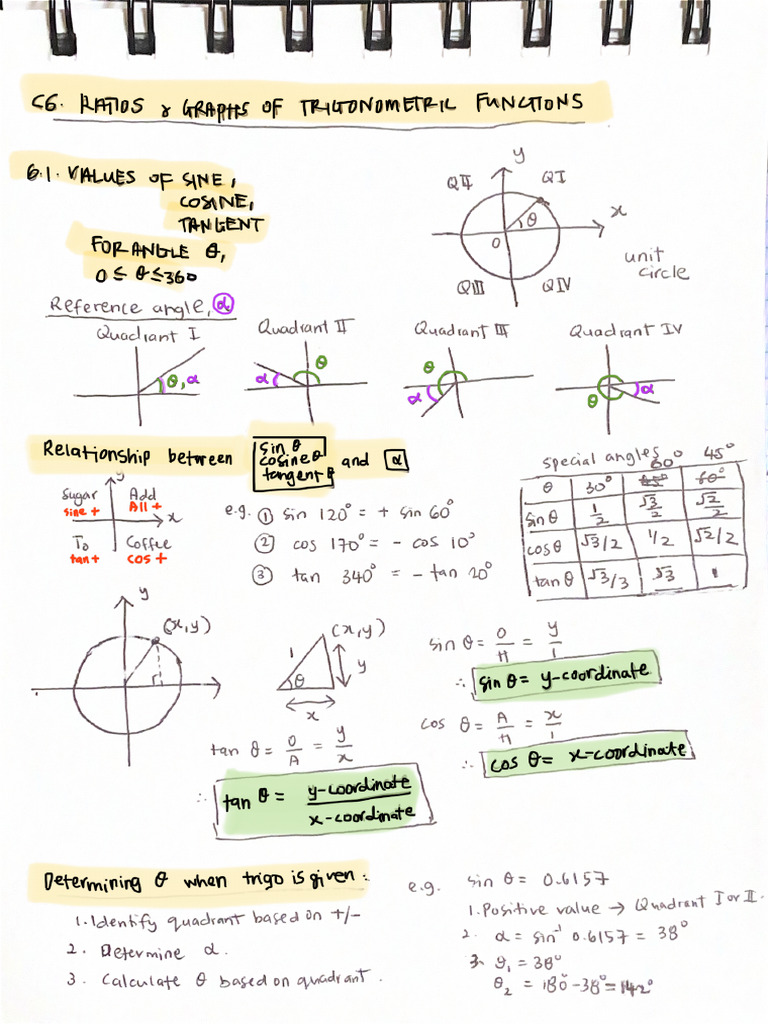 C6. RATIOS & GRAPHS OF TRIGONOMETRIC FUNCTIONS
6.1. VALUES OF SINE,
COSINE,
TANGENT
FOR ANGLE θ,
0 ≤ θ ≤ 360
y
QII
QI
θ
x
O
QIII
QIV
unit
circle
Reference angle, α
Quadrant I
Quadrant II
Quadrant III
Quadrant IV
θ, α
α
θ
θ
α
θ
α
Relationship between
sin θ
cosine θ
tangent θ
and α
y
Sugar
sine +
Add
All +
x
To
tan +
Coffee
cos +
e.g. ① sin 120° = + sin 60°
② cos 170° = - cos 10°
③ tan 340° = - tan 20°
special angles
60° 45°
θ 30° 45° 60°
sin θ 1/2 √3/2 √2/2
cos θ √3/2 1/2 √2/2
tan θ √3/3 √3 1
y
(x, y)
(x, y)
1
y
θ
x
sin θ = O/H = y/1
∴ sin θ = y-coordinate
cos θ = A/H = x/1
∴ cos θ = x-coordinate
tan θ = O/A = y/x
∴ tan θ = y-coordinate/x-coordinate
Determining θ when trigo is given:
1. Identify quadrant based on +/-
2. Determine α.
3. Calculate θ based on quadrant.
e.g. sin θ = 0.6157
1. Positive value → Quadrant I or II.
2. α = sin⁻¹ 0.6157 = 38°
3. θ₁ = 38°
θ₂ = 180° - 38° = 142°